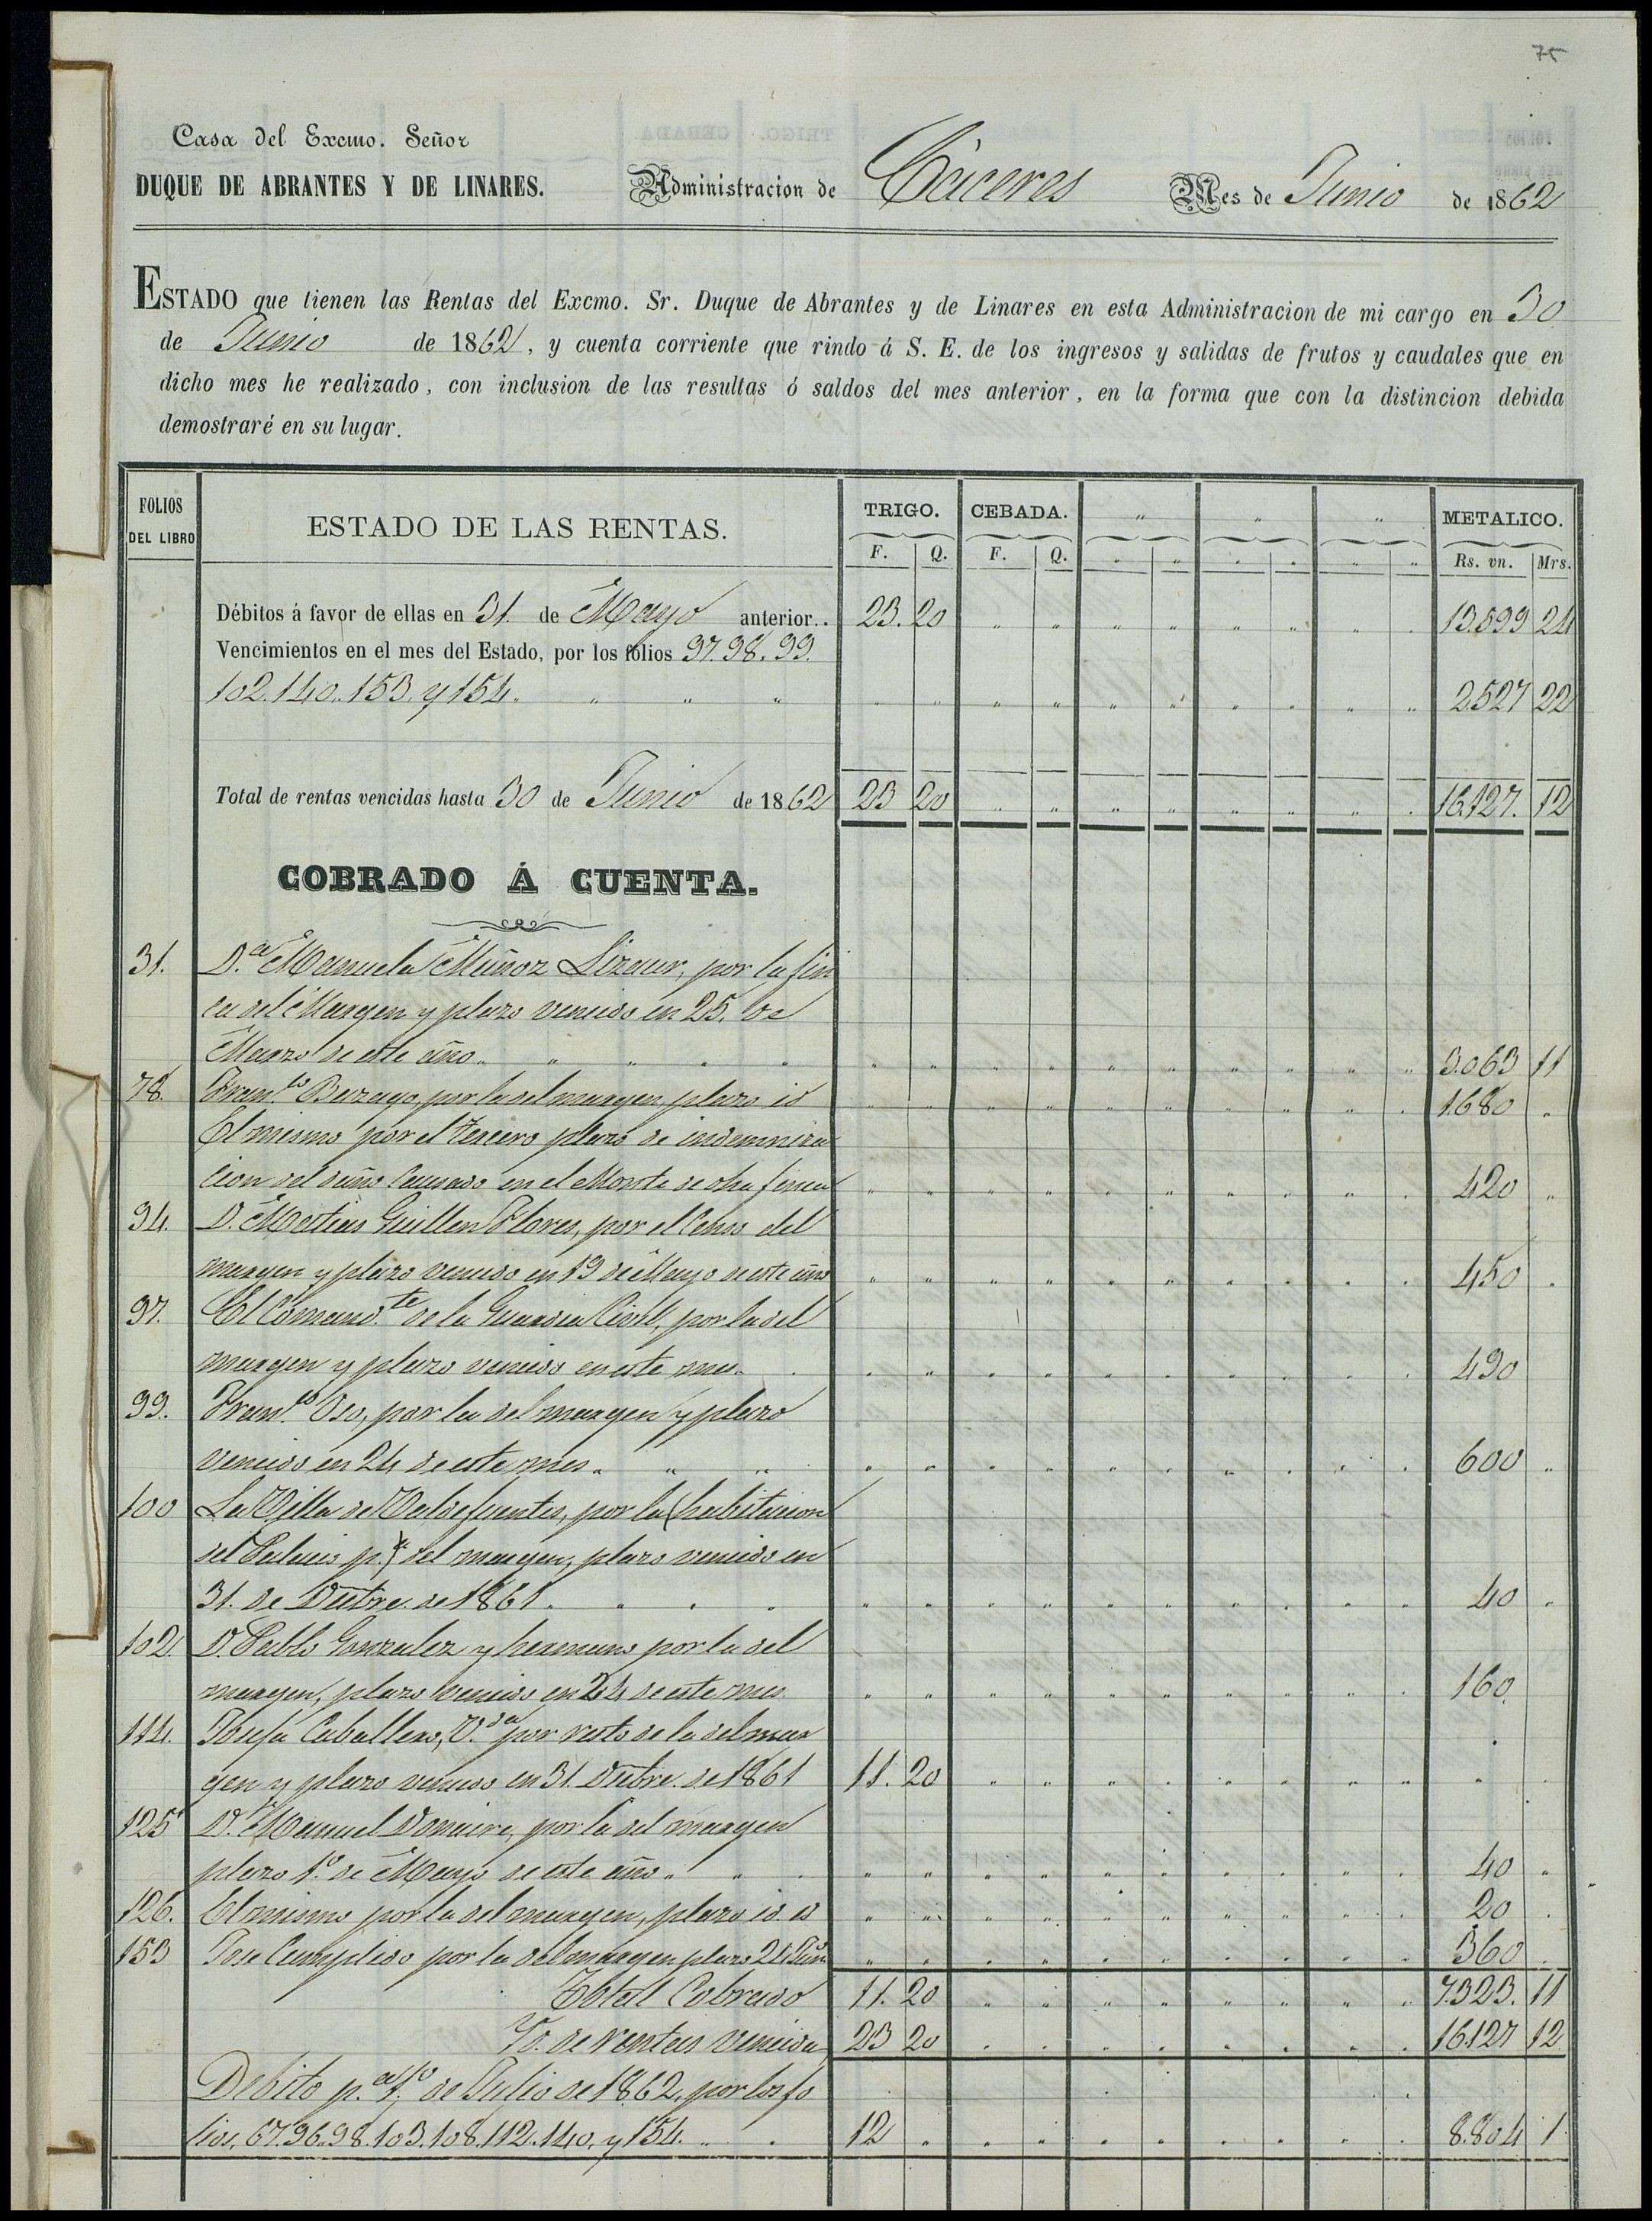 75
Casa del Excmo. Señor
DUQUE DE ABRANTES Y DE LINARES.
Administracion de Cáceres Mes de Junio de 1862
ESTADO que tienen las Rentas del Excmo. Sr. Duque de Abrantes y de Linares en esta Administracion de mi cargo en 30
de Junio de 1862, y cuenta corriente que rindo á S. E. de los ingresos y salidas de frutos y caudales que en
dicho mes he realizado, con inclusion de las resultas ó saldos del mes anterior, en la forma que con la distincion debida
demostraré en su lugar.
FOLIOS DEL LIBRO ESTADO DE LAS RENTAS. TRIGO. CEBADA. " " " METALICO.
F. Q. F. Q. " " " " " " Rs. vn. Mrs.
Débitos á favor de ellas en 31. de Mayo anterior.. 23. 20 13.599 24
Vencimientos en el mes del Estado, por los fólios 97. 98. 99.
102. 140. 153. y 154. " " " 2.527 22
Total de rentas vencidas hasta 30 de Junio de 1862 23 20 16.127. 12
COBRADO Á CUENTA.
31. D.ª Manuela Muñoz Lizaur, por la fin
ca del Margen y plazo vencido en 25. de
Marzo de este año 3.063 11
78. Fran.co Berzayo, por la del margen, plazo id 1.680 "
El mismo por el tercero plazo de indemniza
cion del daño causado en el Monte de dha finca 420 "
94. D. Matias Guillen Flores, por el Censo del
margen y plazo vencido en 19 de Mayo de este año 450 "
97. El Comand.te de la Guardia Civil, por la del
margen y plazo vencido en este mes. 490
99. Fran.co Oso, por la del margen y plazo
vencido en 24 de este mes " 600 "
100 La Villa de Valdefuentes, por la habitacion
del Palacio p.r del margen, plazo vencido en
31. de Dicbre. de 1861. 40 "
102. D. Pablo Gonzalez y hermano por la del
margen, plazo vencido en 24 de este mes 160
114. Josefa Caballero, V.da por resto de la del mar
gen y plazo vencido en 31. Dicbre. de 1861 11. 20
125 D. Manuel Donaire, por la del margen
plazo 1.º de Mayo de este año " 40 "
126. El mismo por la del margen, plazo id. id 20
153 Jose Cumplido por la del margen plazo 24 Jun.o 360
Total Cobrado 11. 20 7.323. 11
Yd. de rentas vencidas 23 20 16.127 12
Debito p.a 1.º de Julio de 1862, por los fo
lios, 67. 96. 98. 103. 108. 112. 140. y 154. 12 " 8.804 1